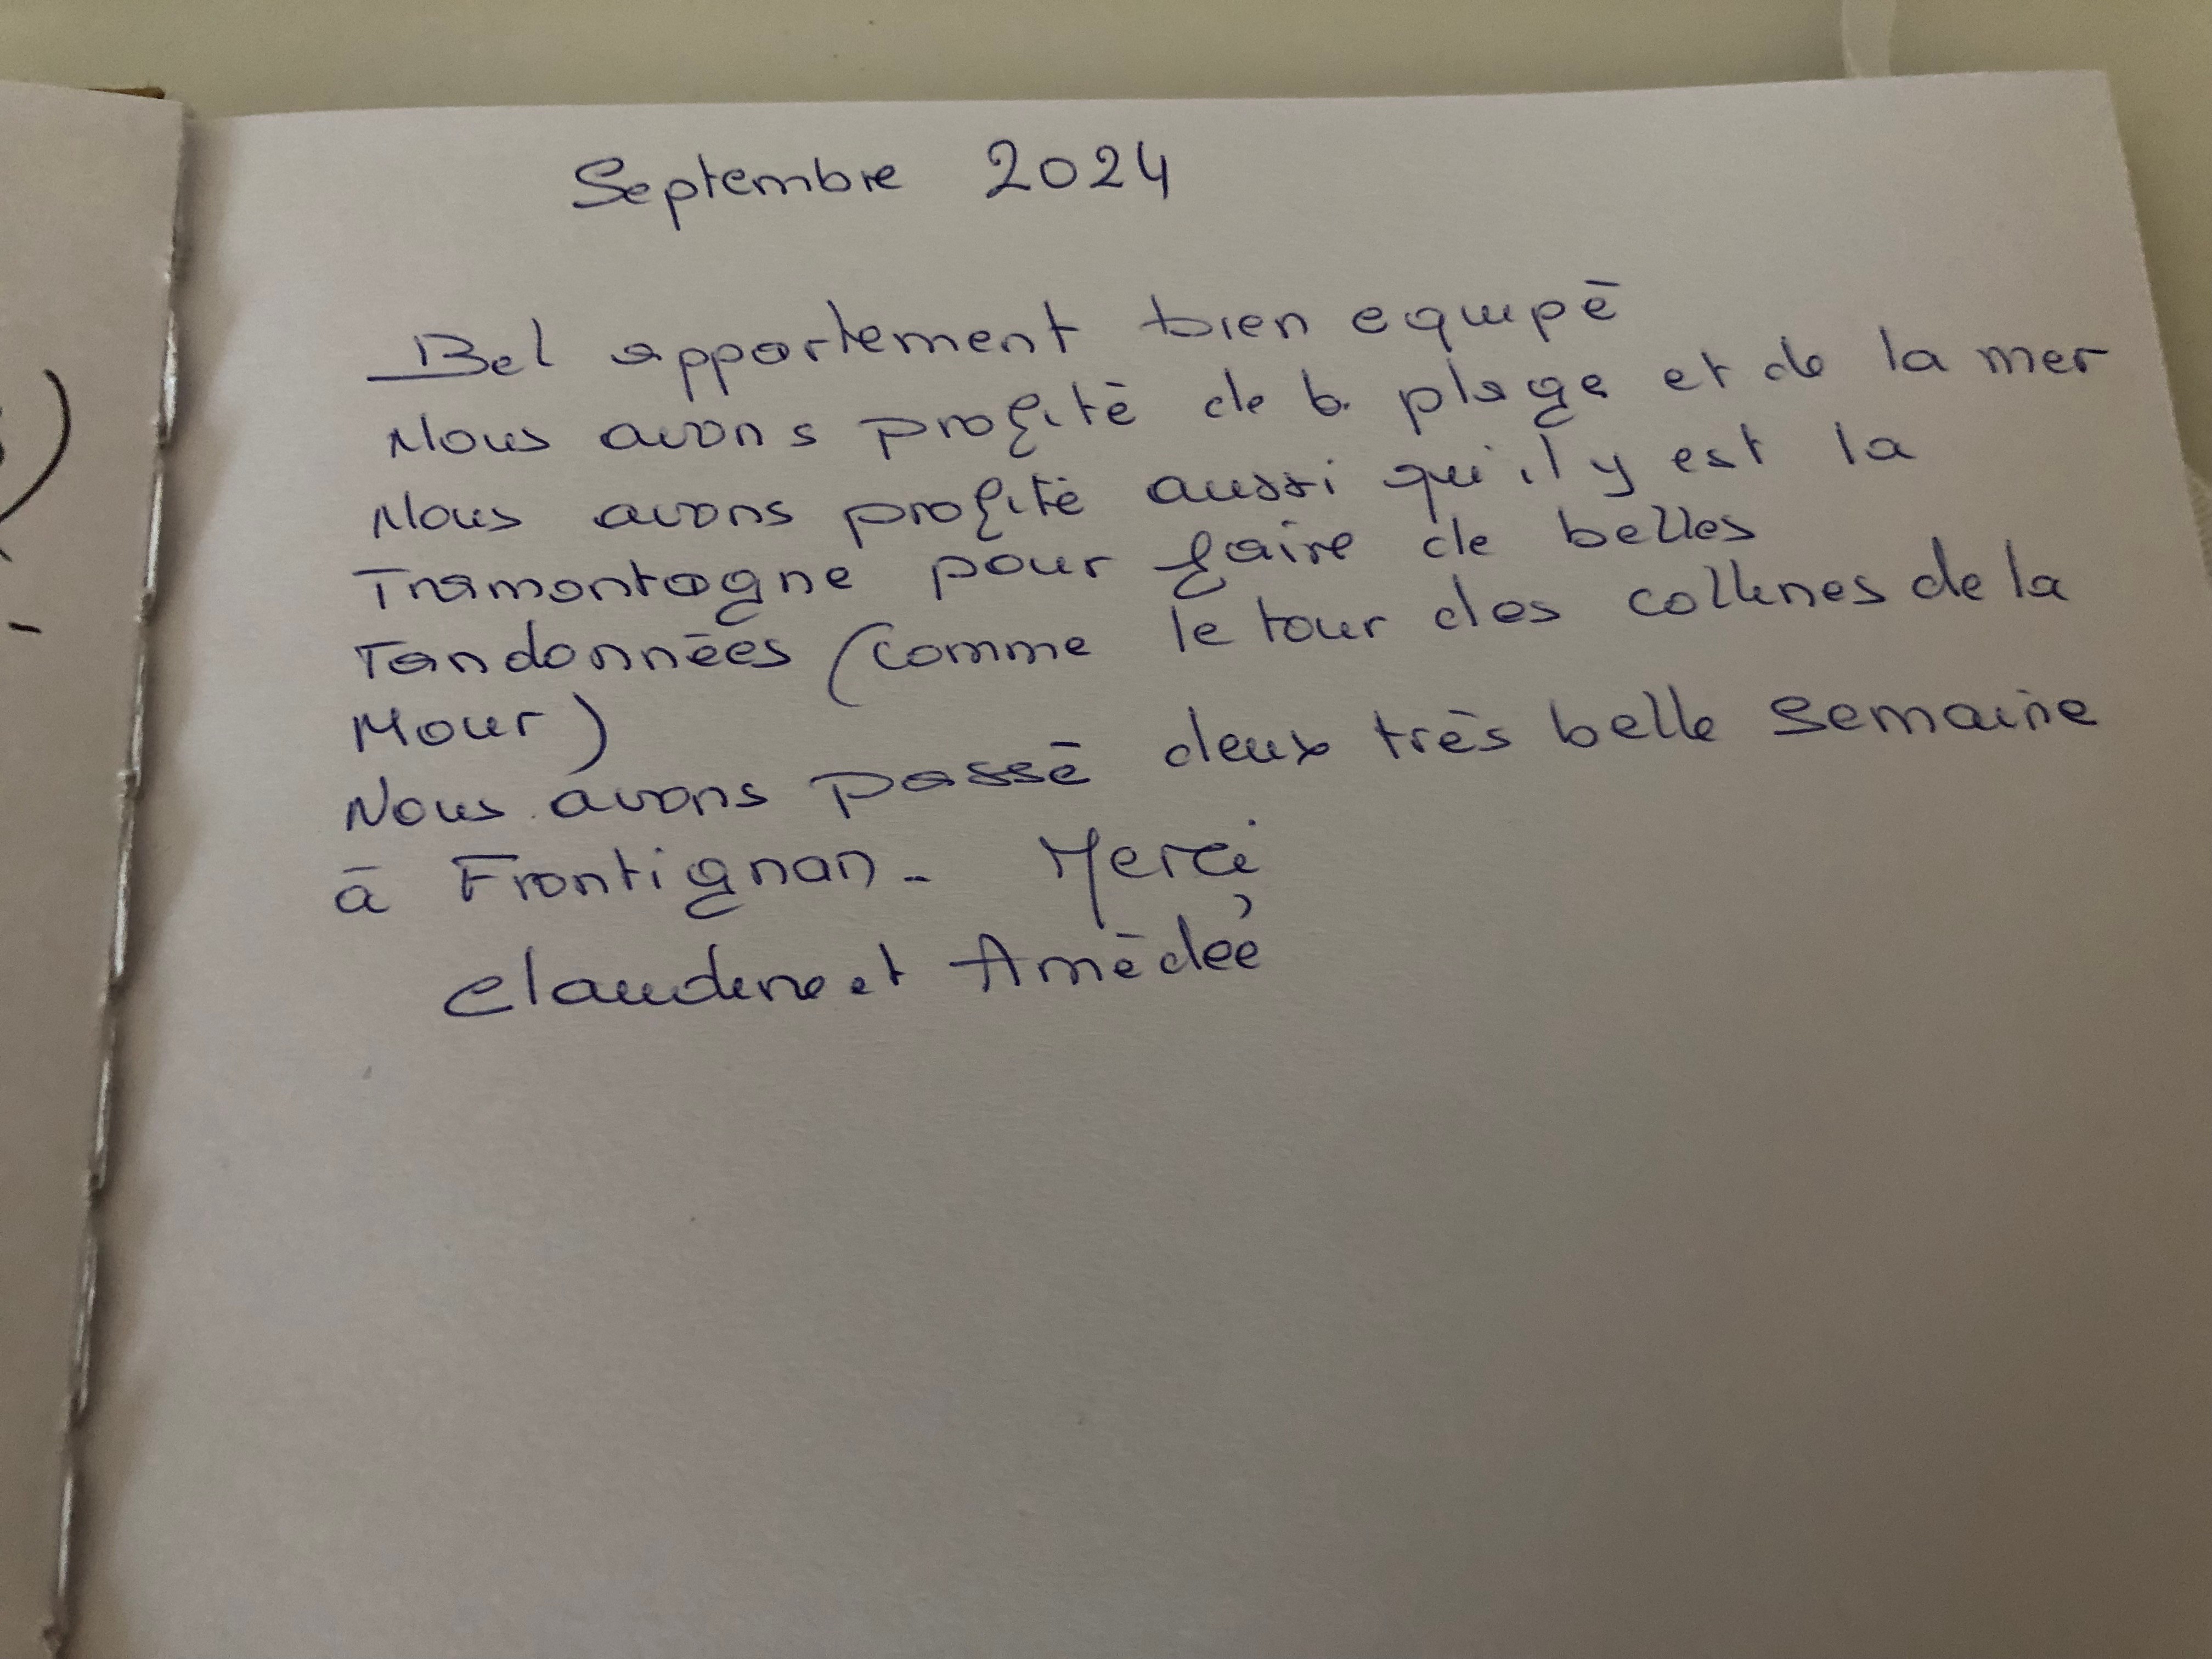 Septembre 2024
Bel appartement bien equipé
Nous avons profité de la plage et de la mer
Nous avons profité aussi qu'il y est la
Tramontagne pour faire de belles
randonnées (comme le tour des collines de la
Mour)
Nous avons passé deux très belle semaine
à Frontignan - Merci
Claudine et Amédée